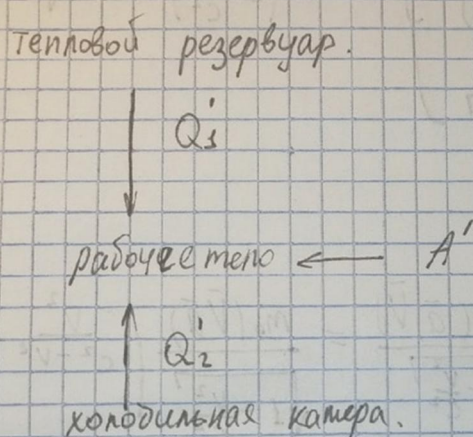 тепловой резервуар.
Q'₁
рабочее тело A'
Q'₂
холодильная камера.